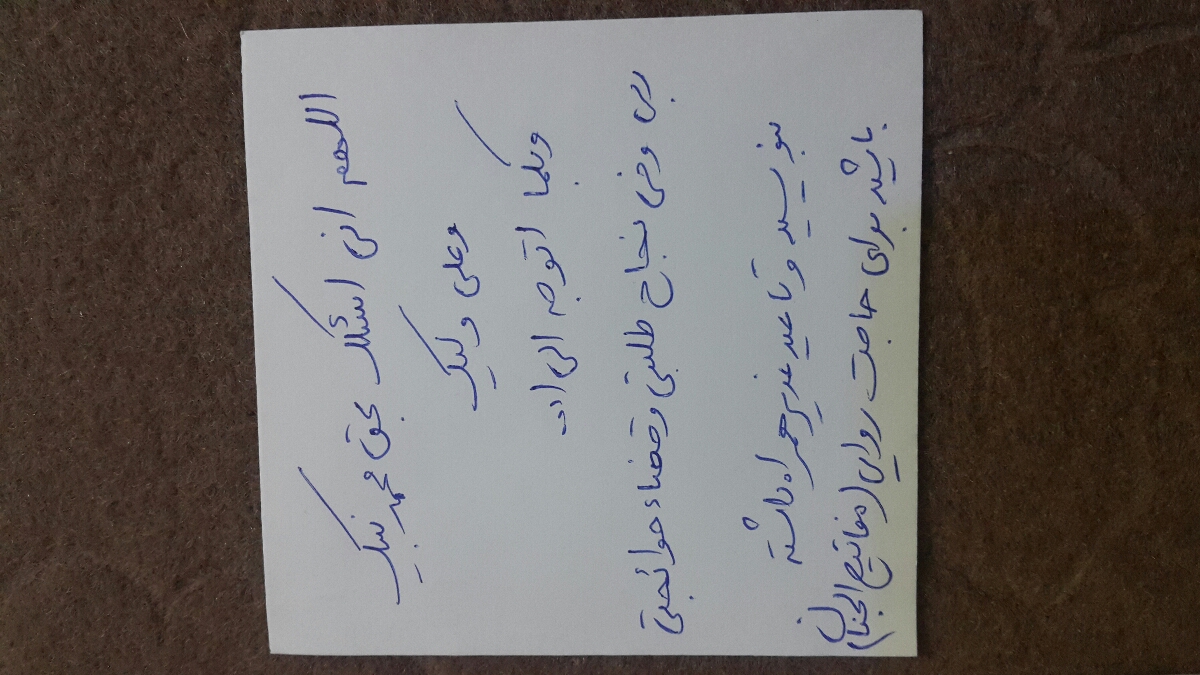 اللهم انی اسئلک بحق محمد نبیک
وعلی ولیک
وبکما اتوجه الی
ربی وفی نجاح طلبتی وقضاء حوائجتی
بنویسید و تا عید غدیر همراه داشته
باشید برای حاجت روایی (مفاتیح الجنان)